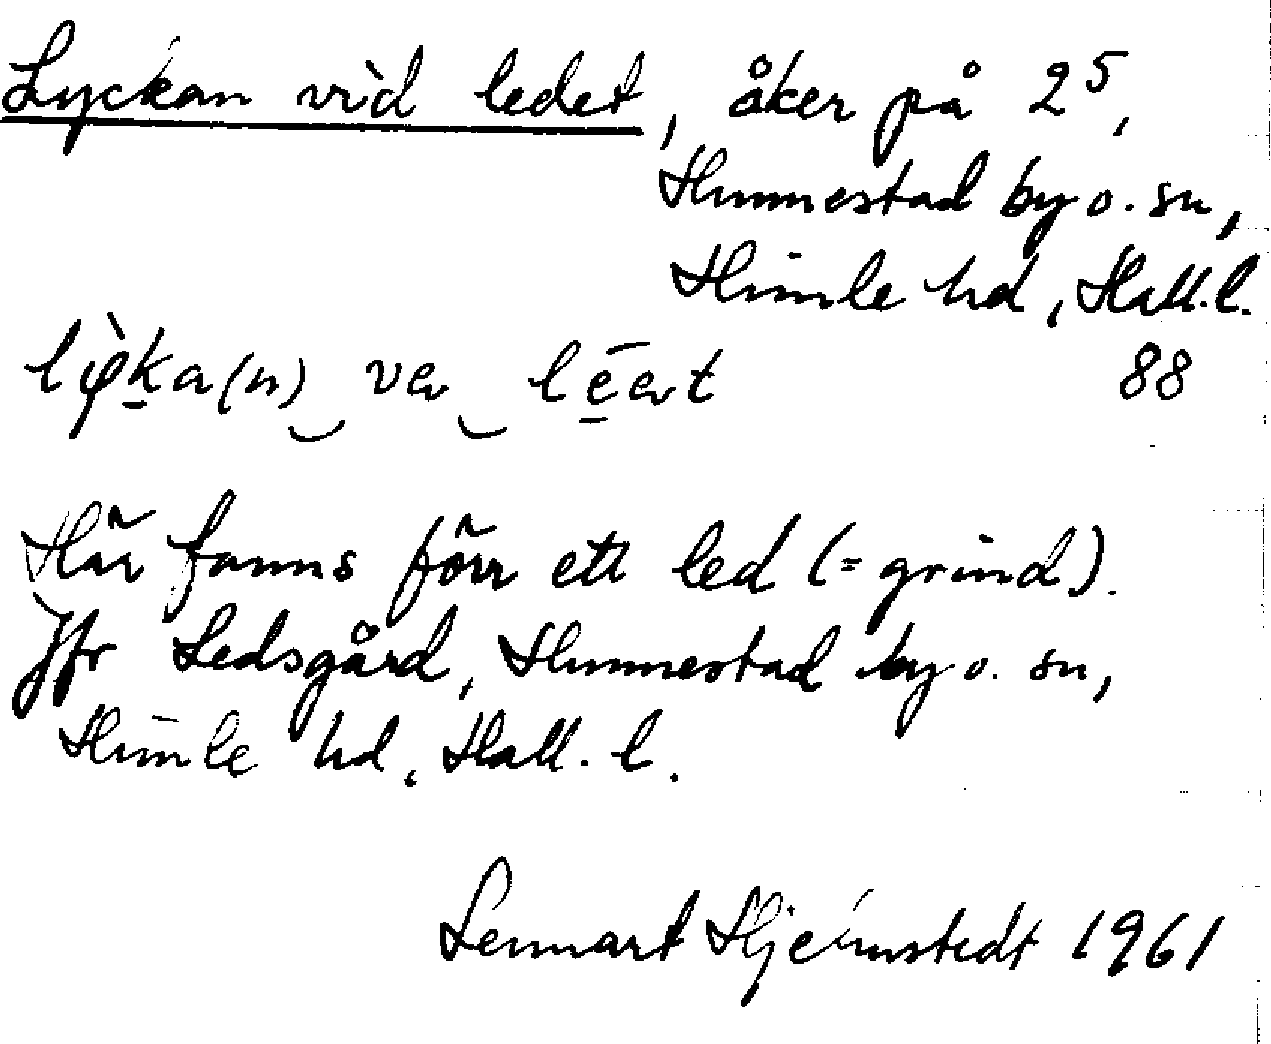 Lyckan vid ledet, åker på 2⁵,
Hunnestad by o. sn,
Himle hd, Hall.l.
88
Här fanns förr ett led (= grind).
Jfr Ledsgård, Hunnestad by o. sn,
Himle hd, Hall. l.
Lennart Hjelmstedt 1961